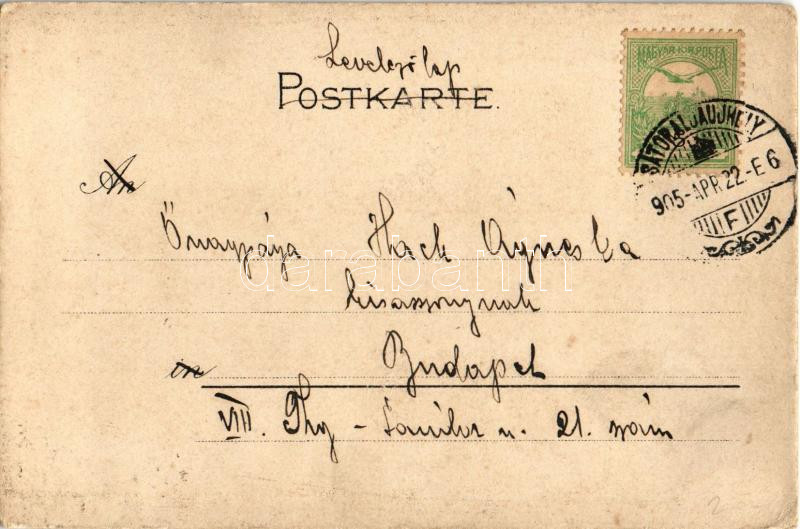 Levelező lap
POSTKARTE.
MAGYAR KIR. POSTA
SÁTORALJAUJHELY
905-APR.22.-E6
F
An
Őnagysága Hack Ágnes
kisasszonynak
in
Budapest
VIII. Sándor u. 21. szám
darabanth